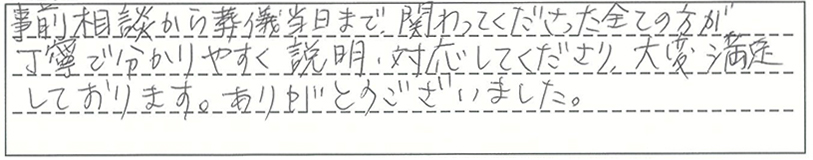 事前相談から葬儀当日まで、関わってくださった全ての方が
丁寧で分かりやすく説明・対応してくださり、大変満足
しております。ありがとうございました。